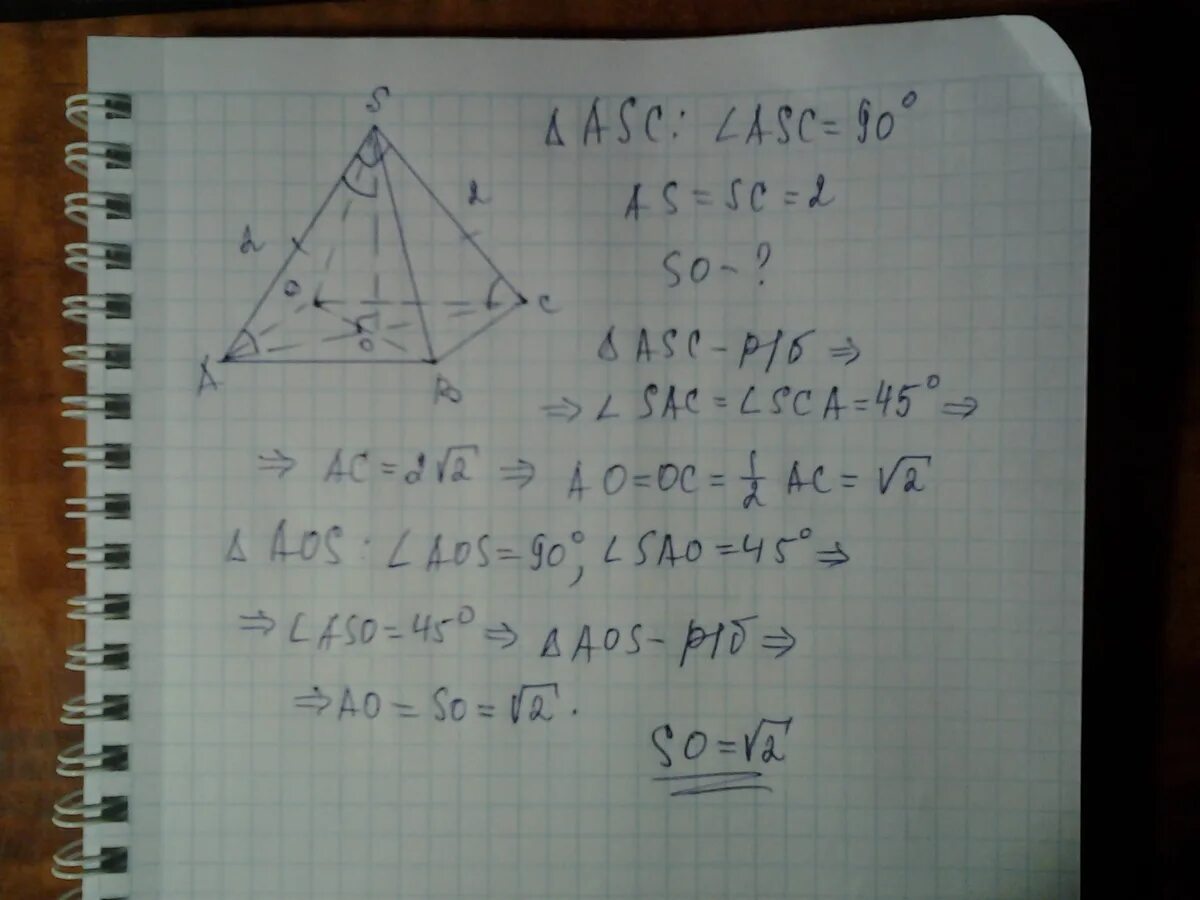 S
Δ ASC: ∠ASC = 90°
2
AS = SC = 2
2
SO - ?
C
O
A
B
Δ ASC - р/б ⇒
⇒ ∠ SAC = ∠SCA = 45° ⇒
⇒ AC = 2√2 ⇒ AO = OC = 1/2 AC = √2
Δ AOS : ∠AOS = 90°, ∠SAO = 45° ⇒
⇒ ∠ASO = 45° ⇒ Δ AOS - р/б ⇒
⇒ AO = SO = √2 .
SO = √2